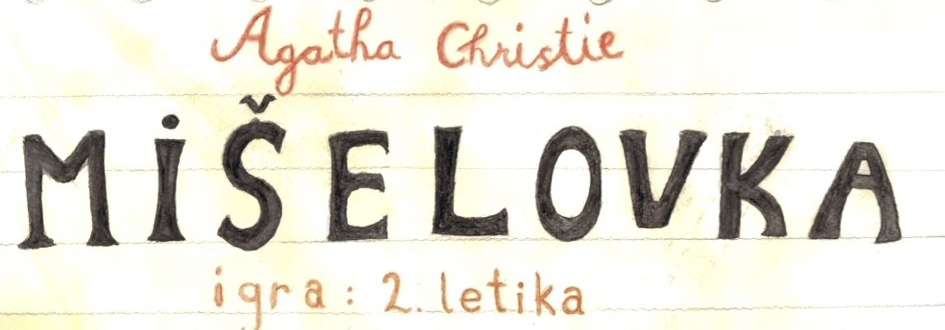 Agatha Christie
MiŠELOVKA
igra: 2. letika